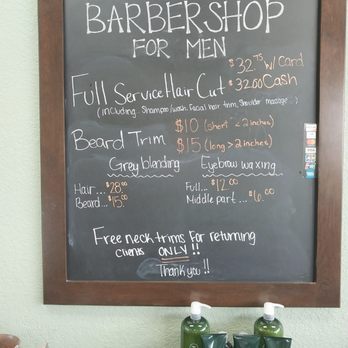 BARBERSHOP
FOR MEN
$32.75 w/ Card
Full Service Hair Cut $32.00 Cash
(including Shampoo/wash, Facial hair trim, Shoulder massage)
Beard Trim $10 (short < 2 inches)
$15 (long > 2 inches)
Grey blending
Hair... $28.00
Beard... $15.00
Eyebrow waxing
Full... $12.00
Middle part... $6.00
Free neck trims For returning
clients ONLY!!
Thank you!!